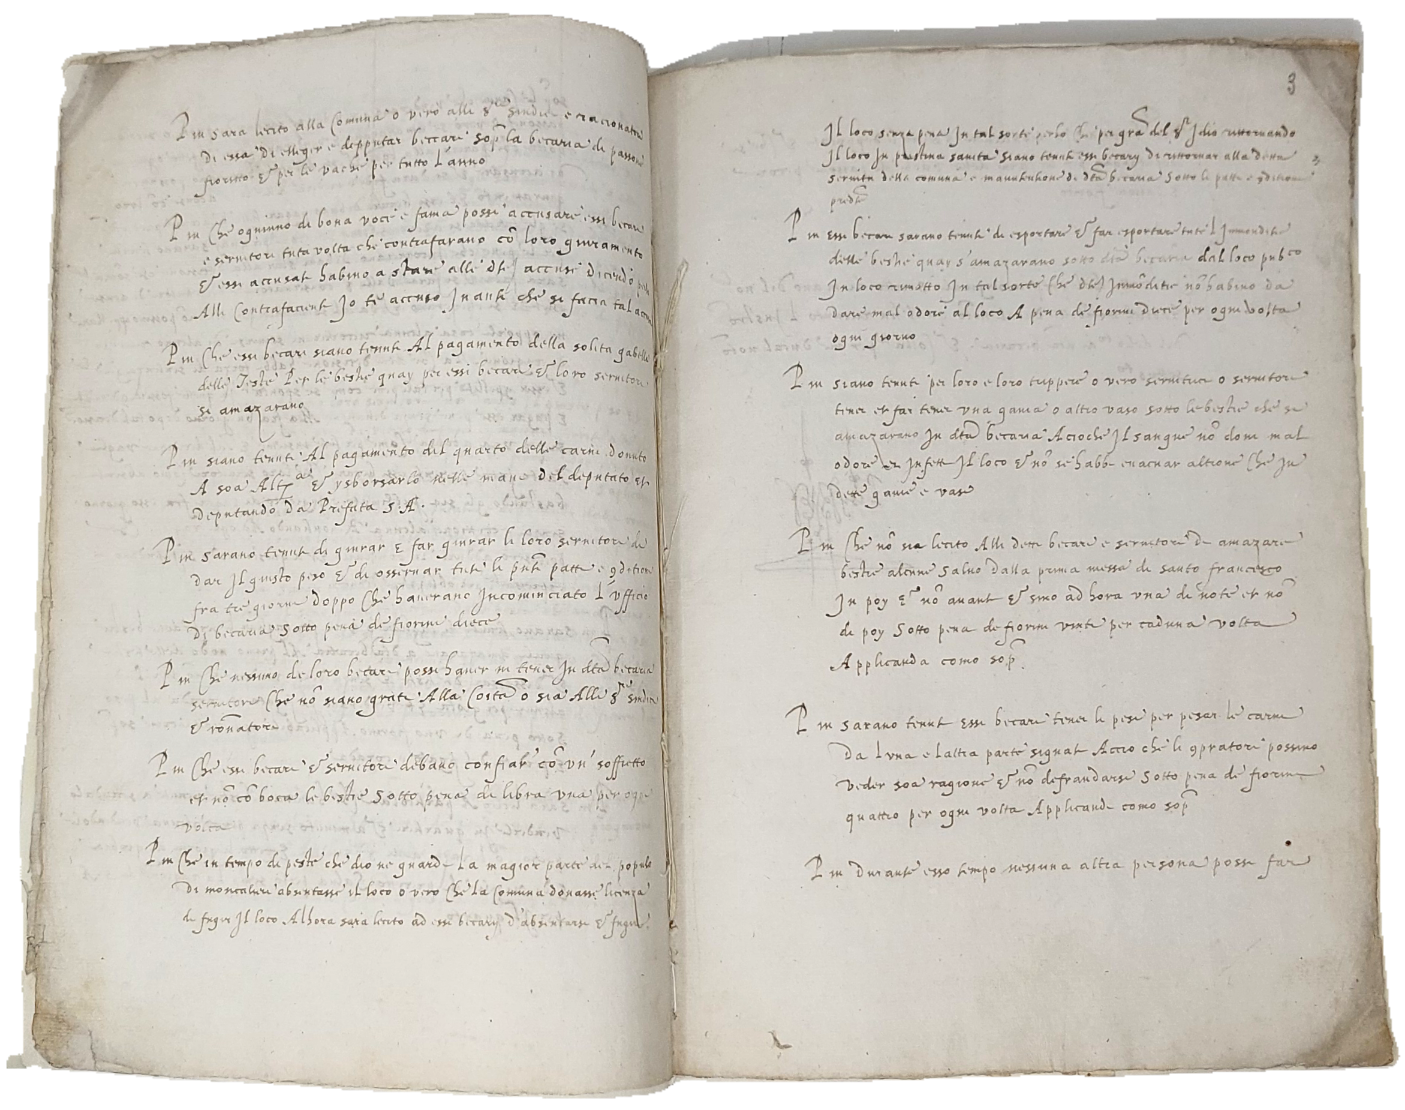 Pm sara lecito alla Comuna o vero alli Sri Sindici e racionatori
di essa di elleger e depputar beccari sopra la becaria di passoni
fioritto & per le vache per tutto l'anno
Pm Che ogniuno di bona voce e fama possi accusare essi becari
e servitori tuta volta che contrafarano cõ loro giuramento
& essi accusati habino a stare alle dte accuse dicendo
Alli Contrafacienti Io te accuso Inanti che si facia tal
Pm Che essi becari siano tenuti Al pagamento della solita gabella
delle Teste Per le bestie quay per essi becari & loro servitori
si amazarano
Pm siano tenuti Al pagamento del quarto delle carni donuto
A soa Altza & ysborsarlo nelle mane del deputato et
deputando da Prefata S A.
Pm sarano tenuti di giurar e far giurar li loro servitori de
dar Il giusto peso & di osservar tuti li pnti patti e 9ditioni
fra tre giorni doppo Che haverano Incominciato l'ufficio
Di becaria sotto pena de fiorini diece
Pm Che nessuno de loro becari possi haver ni tener In dta becaria
servitori Che nõ siano grati Alla Coita o sia Alli Sri Sindici
& rõnatori
Pm Che essi becari & servitori debano confiar cõ un soffietto
et nõ cõ boca le bestie Sotto pena di libra una per ogni
volta
Pm Che in tempo di peste che dio ne guardi La magior parte del populo
Di moncaleri absentasse il loco o vero Che La Comuna donasse licenza
di fuger Il loco Alhora sara lecito ad essi becary d'absentarsi & fugir
3
Il loco senza pena In tal sorte perho Che per gra del Sr Idio rittornando
Il loco In pristina sanita siano tenuti essi becary di rittornar alla detta
servitu della comuna e manutentione di dta becaria Sotto li patti e 9ditioni
predte
Pm Essi becari sarano tenuti di esportare & far esportare tute l'Immonditie
delle bestie quay s'amazarano sotto dta becaria dal loco pubco
In loco rimotto In tal sorte Che dte Immõditie nõ habino da
dare mal odore al loco A pena de fiorini diece per ogni volta
ogni giorno
Pm siano tenuti per loro e loro trippere o vero servitrici o servitori
tener et far tener una gavia o altro vaso sotto le bestie che si
amazarano In dta becaria Accioche Il sangue nõ doni mal
odore et Infetti Il loco & nõ se habbi evacuar altrove Che In
dette gavie e vasi
Pm Che nõ sia lecito Alli detti becari e servitori de amazare
bestie alcune Salvo dalla prima messa di santo francesco
In poy & nõ avanti & sino ad hora una di note et nõ
di poy Sotto pena de fiorini vinti per caduna volta
Applicanda como sopa
Pm sarano tenuti Essi becari tener li pesi per pesar le carni
Da l'una e l'altra parte signati Accio che li 9pratori possino
veder soa ragione & nõ defraudarsi Sotto pena de fiorini
quattro per ogni volta Applicandi como sopa
Pm Durante esso tempo nessuna altra persona possi far